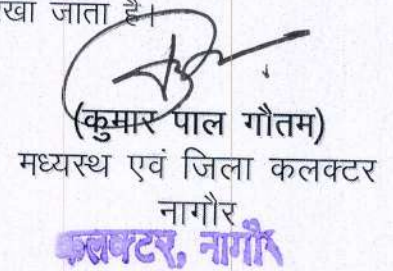 खा जाता है।
(कुमार पाल गौतम)
मध्यस्थ एवं जिला कलक्टर
नागौर
कलक्टर, नागौर